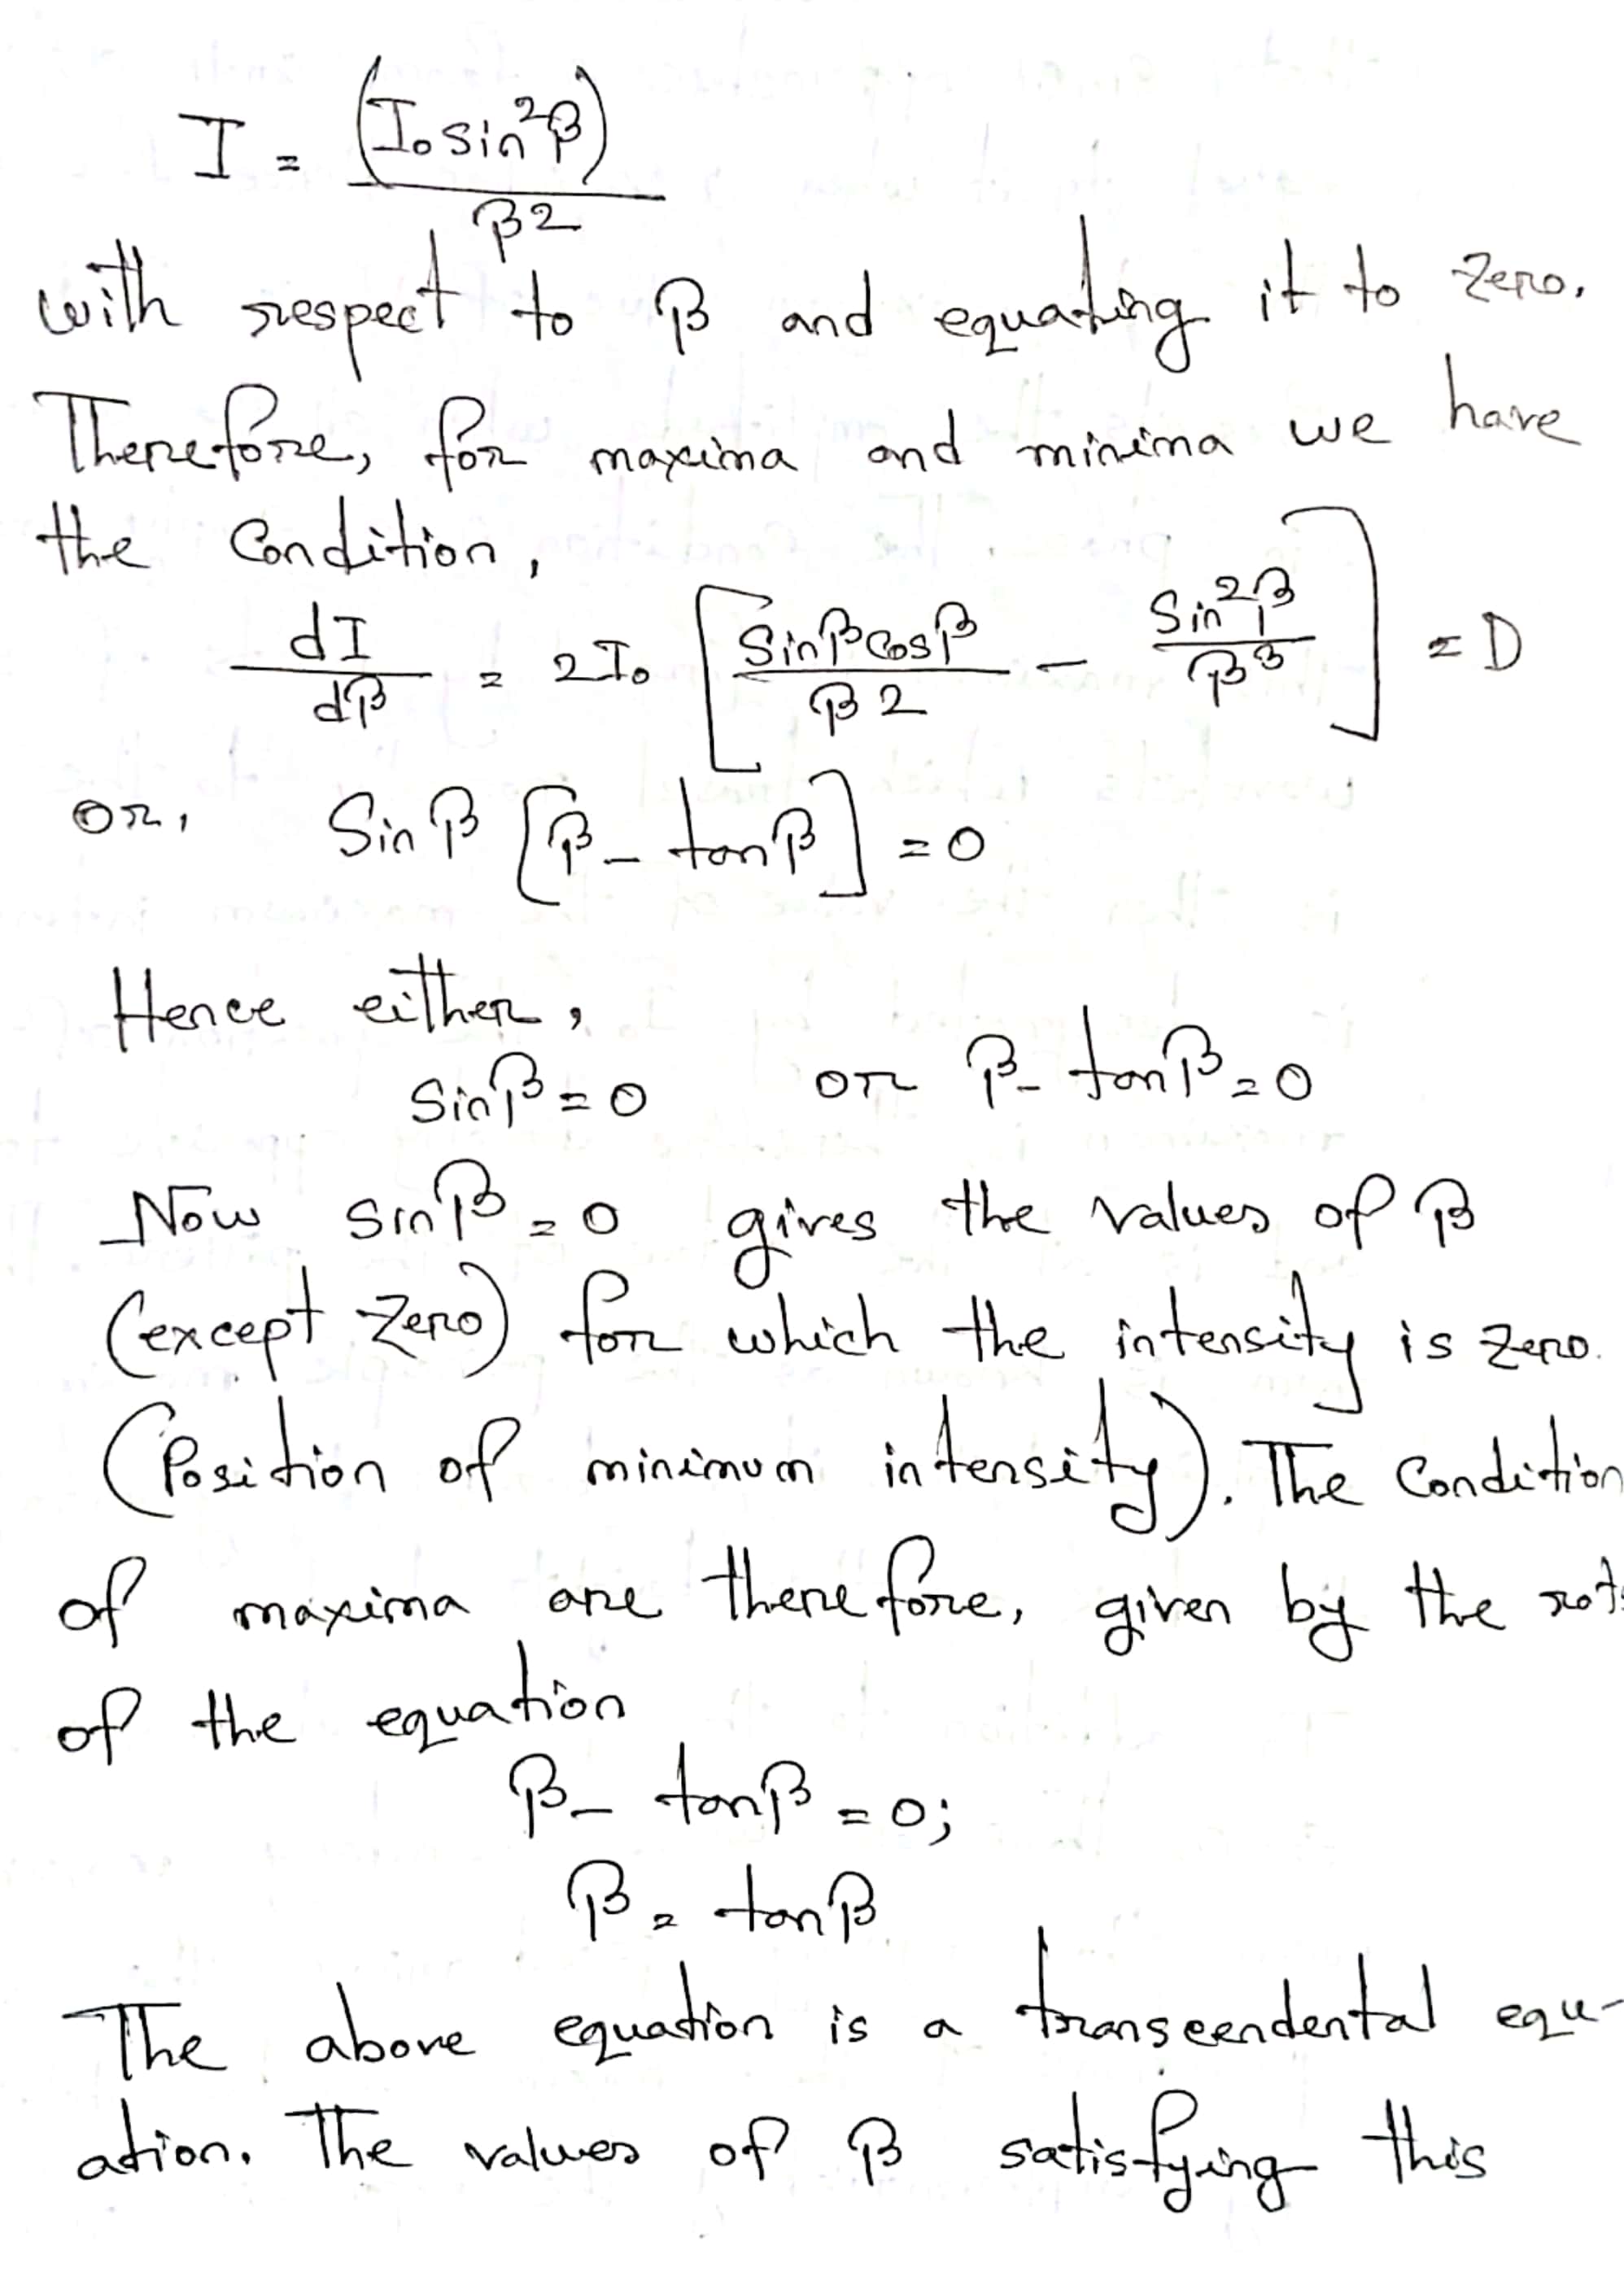 I = (I₀ sin²β) / β2
with respect to β and equating it to zero.
Therefore, for maxima and minima we have
the Condition,
dI/dβ = 2I₀ [Sinβ Cosβ / β2 − Sin²β / β³] = D
or, Sin β [β − tan β] = 0
Hence either,
Sinβ = 0 or β − tanβ = 0
Now sinβ = 0 gives the values of β
(except zero) for which the intensity is zero.
(Position of minimum intensity). The Condition
of maxima are therefore, given by the
of the equation
β − tanβ = 0;
β = tanβ
The above equation is a transcendental equ-
ation. The values of β satisfying this